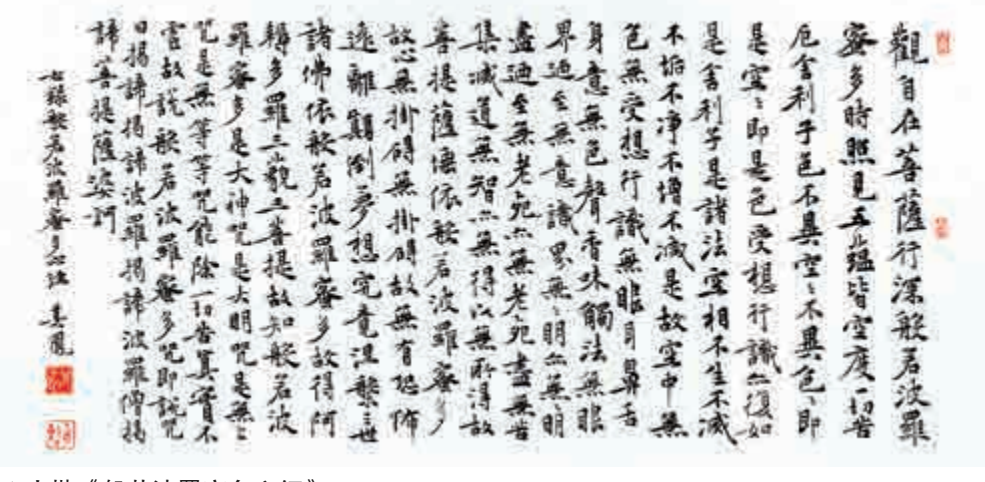 觀自在菩薩行深般若波羅
蜜多時照見五蘊皆空度一切苦
厄舍利子色不異空〻不異色〻即
是空〻即是色受想行識亦復如
是舍利子是諸法空相不生不滅
不垢不淨不增不減是故空中無
色無受想行識無眼耳鼻舌
身意無色聲香味觸法無眼
界迺至無意識界無〻明亦無〻明
盡迺至無老死亦無老死盡無苦
集滅道無智亦無得以無所得故
菩提薩埵依般若波羅蜜多
故心無掛碍無掛碍故無有恐怖
遠離顛倒夢想究竟涅槃三世
諸佛依般若波羅蜜多故得阿
耨多羅三藐三菩提故知般若波
羅蜜多是大神咒是大明咒是無上
咒是無等等咒能除一切苦真實不
虛故說般若波羅蜜多咒即說咒
曰揭諦揭諦波羅揭諦波羅僧揭
諦菩提薩婆訶
右錄般若波羅蜜多心経 鳳